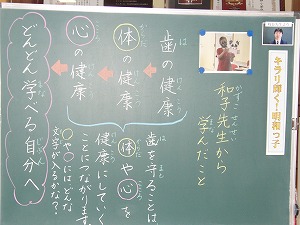 キラリ輝く!昭和っ子
和子先生から
学んだこと
歯の健康
体の健康
心の健康
歯を守ることは、
体や心を
健康にしていく
ことにつながります。
○や○にはどんな
文字が入るかな?
どんどん学べる自分へ